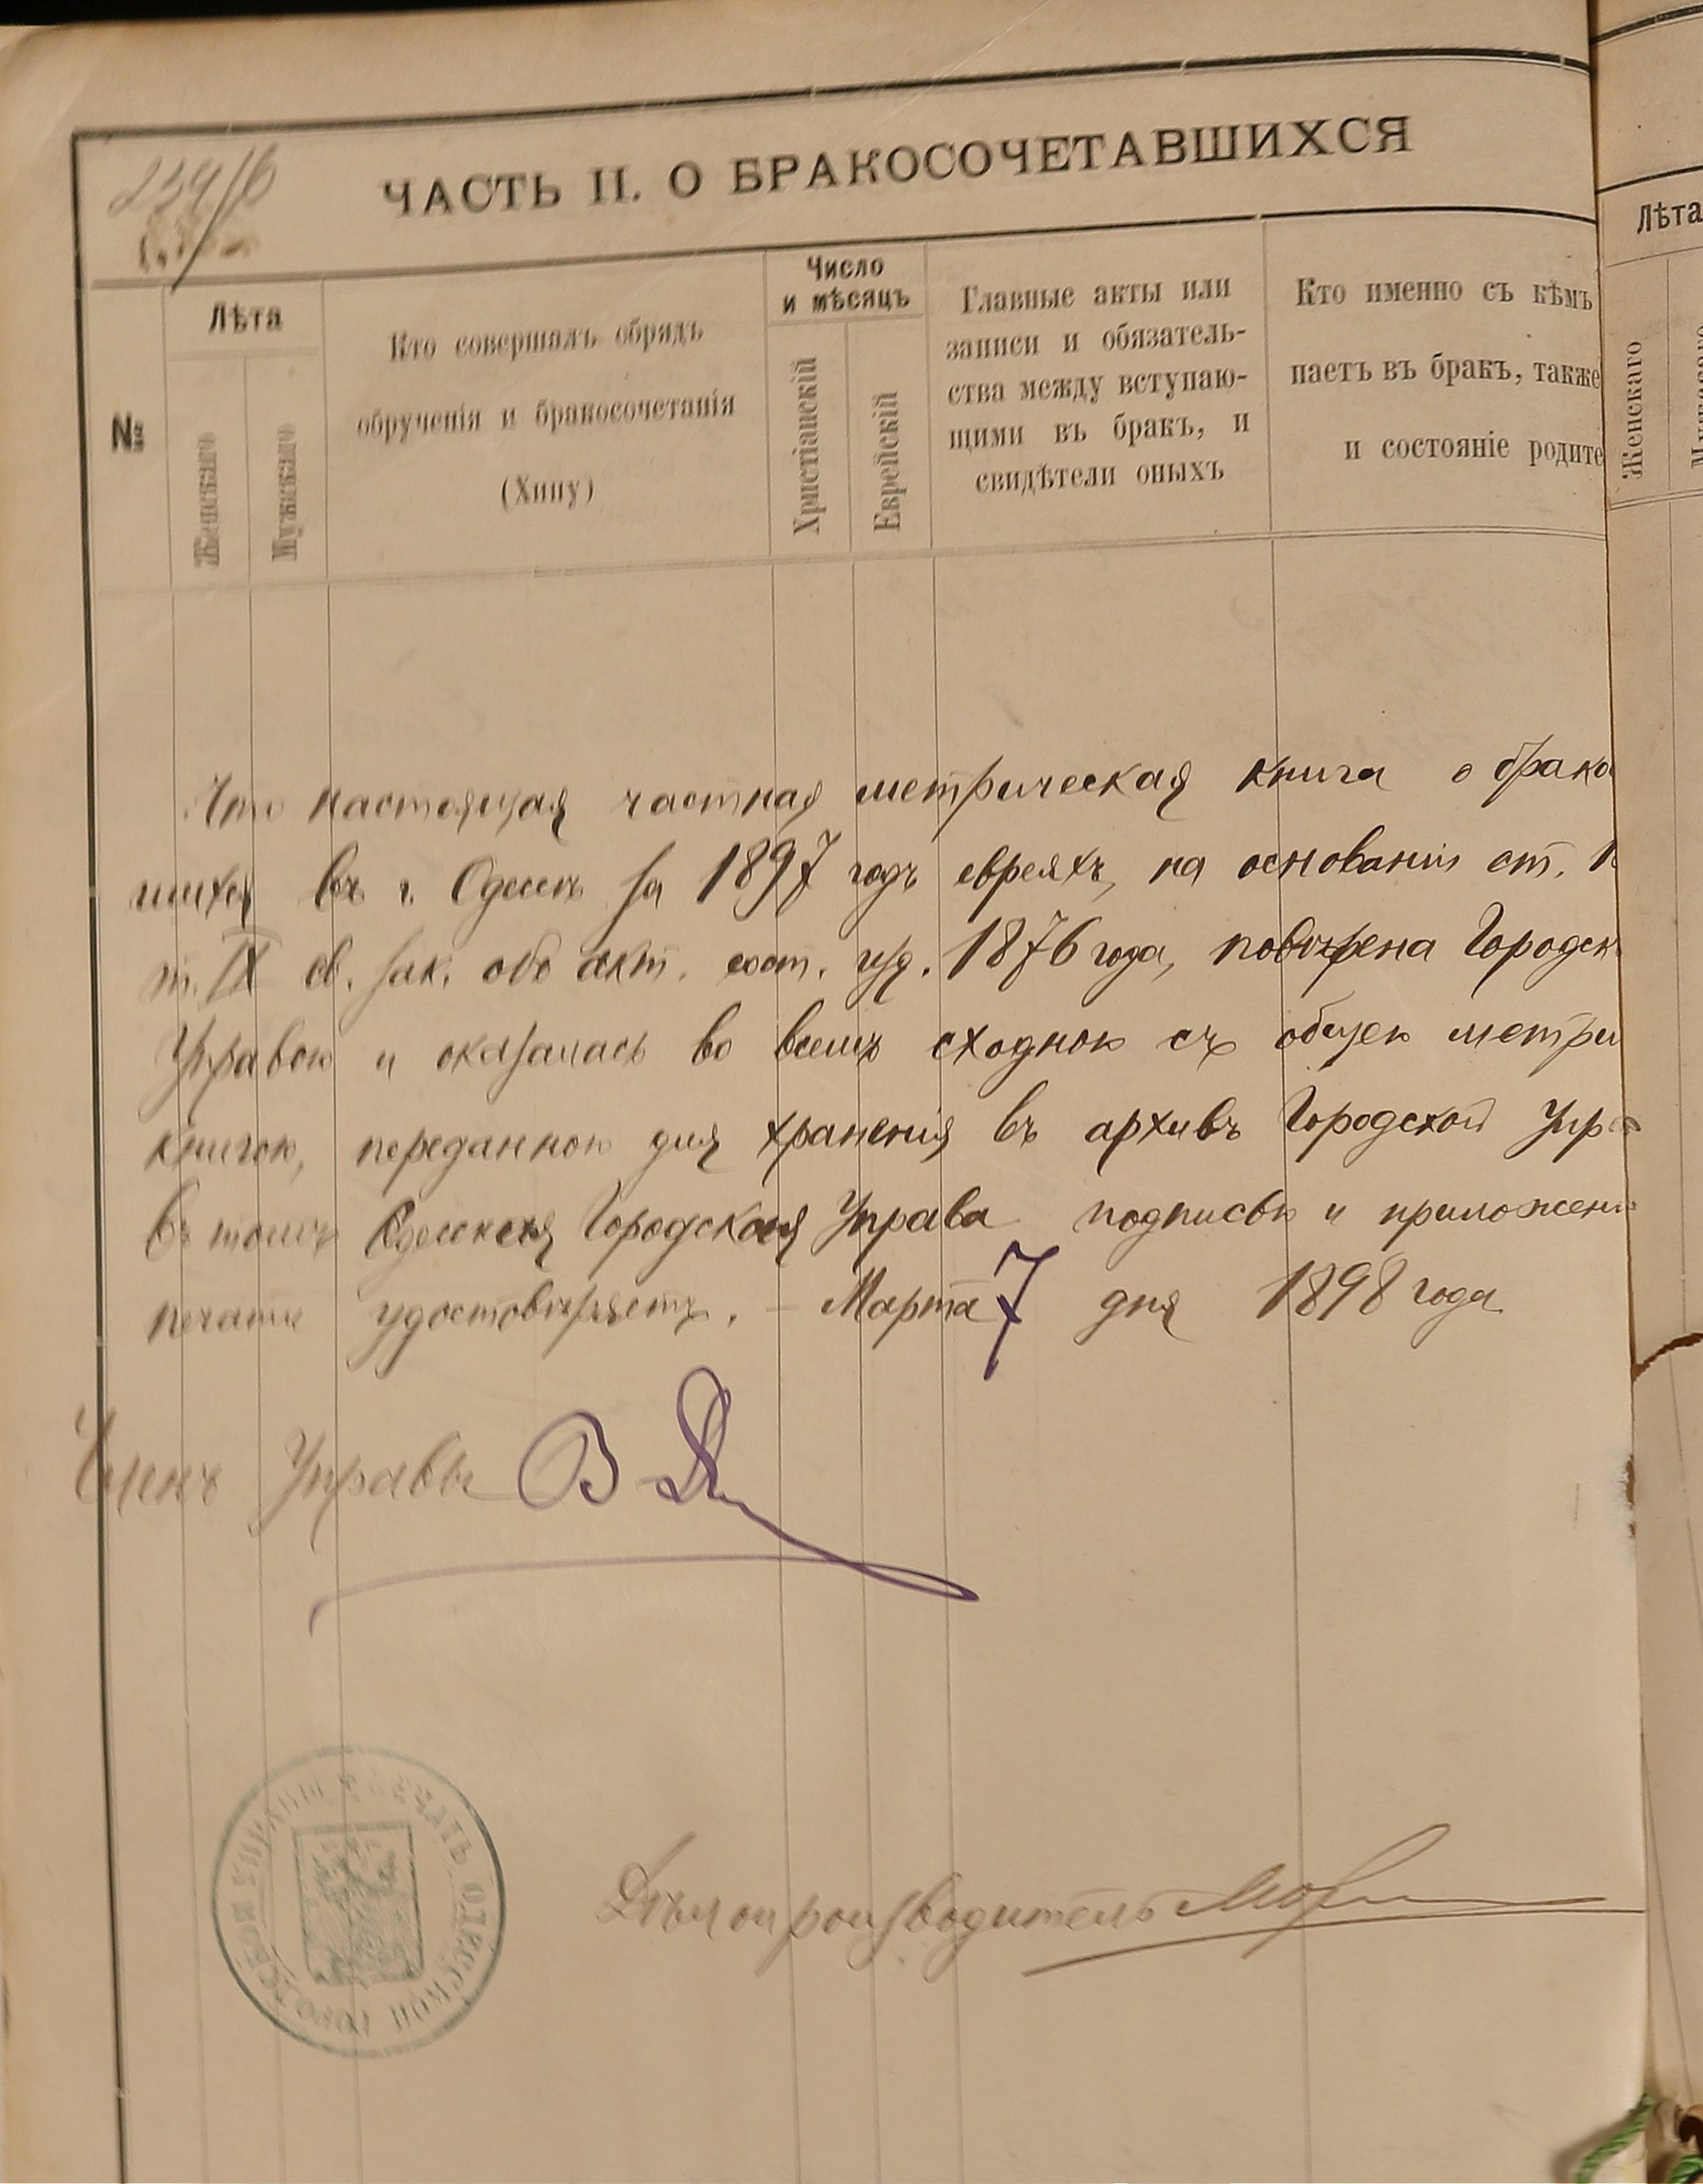 ЧАСТЬ II. О БРАКОСОЧЕТАВШИХСЯ
№
Лѣта
Женскаго
Мужскаго
Кто совершалъ обрядъ
обрученія и бракосочетанія
(Хипу)
Число
и мѣсяцъ
Христіанскій
Еврейскій
Главные акты или
записи и обязатель-
ства между вступаю-
щими въ бракъ, и
свидѣтели оныхъ
Кто именно съ кѣмъ
паетъ въ бракъ, также
и состояніе родите
Лѣта
Женскаго
Что настоящая частная метрическая книга о брако
шихся въ г. Одессѣ за 1897 годъ евреяхъ, на основаніи ст.
т. IX св. зак. объ акт. сост. изд. 1876 года, повѣрена Городск
Управою и оказалась во всемъ сходною съ общею метри
книгою, переданною для храненія въ архивъ Городской Упра
въ томъ Одесская Городская Управа подписью и приложені
печати удостовѣряетъ. – Марта 7 дня 1898 года
Членъ Управы В
Дѣлопроизводитель
ПЕЧАТЬ ОДЕССКОЙ ГОРОДСКОЙ УПРАВЫ